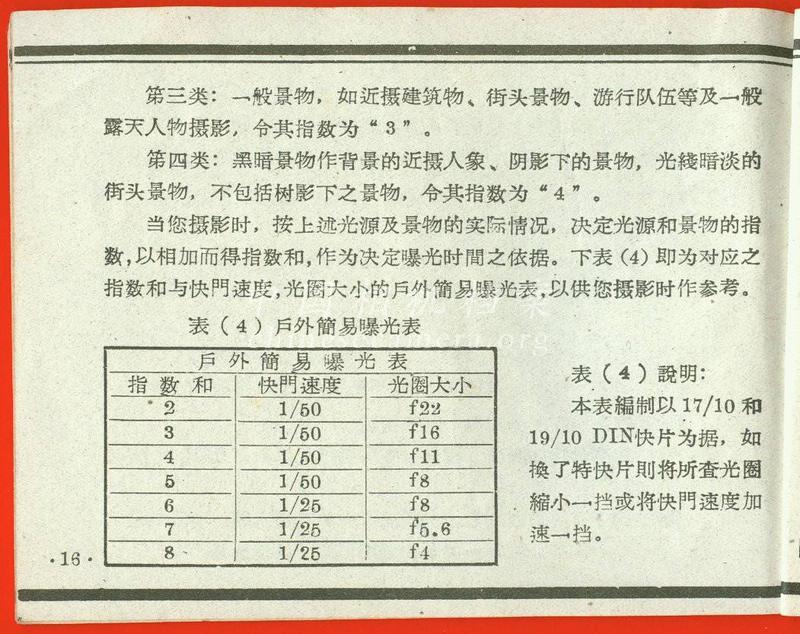 第三类：一般景物，如近摄建筑物、街头景物、游行队伍等及一般
露天人物摄影，令其指数为“3”。
第四类：黑暗景物作背景的近摄人象、阴影下的景物，光綫暗淡的
街头景物，不包括树影下之景物，令其指数为“4”。
当您摄影时，按上述光源及景物的实际情况，决定光源和景物的指
数，以相加而得指数和，作为决定曝光时間之依据。下表（4）即为对应之
指数和与快門速度，光圈大小的戶外簡易曝光表，以供您摄影时作参考。
表（4）戶外簡易曝光表
戶外簡易曝光表
指数和 快門速度 光圈大小
2 1/50 f22
3 1/50 f16
4 1/50 f11
5 1/50 f8
6 1/25 f8
7 1/25 f5.6
8 1/25 f4
表（4）說明：
本表編制以17/10和
19/10 DIN快片为据，如
換了特快片則将所查光圈
縮小一挡或将快門速度加
速一挡。
·16·